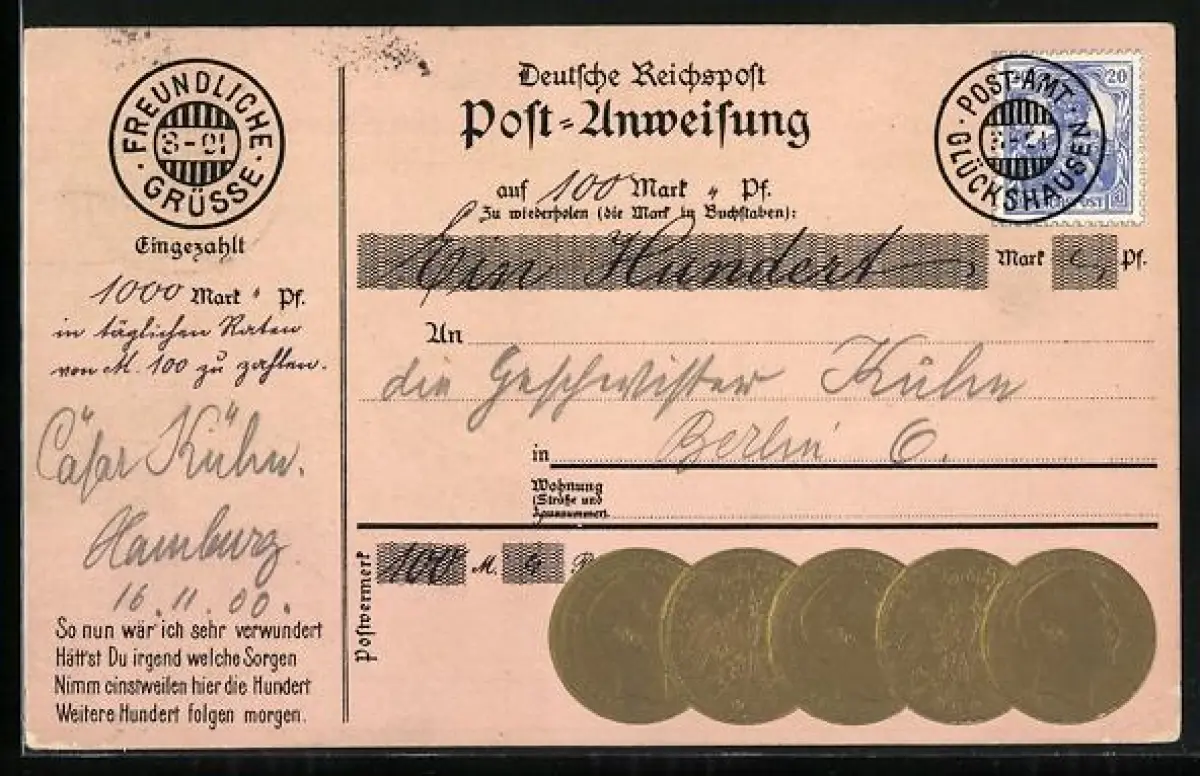 FREUNDLICHE
8-01
GRÜSSE
Eingezahlt
1000 Mark " Pf.
in täglichen Raten
von M. 100 zu zahlen.
Cäsar Kühn.
Hamburg
16.11.00.
So nun wär'ich sehr verwundert
Hätt'st Du irgend welche Sorgen
Nimm einstweilen hier die Hundert
Weitere Hundert folgen morgen.
Deutsche Reichspost
Post-Anweisung
auf 100 Mark " Pf.
Zu wiederholen (die Mark in Buchstaben):
Ein Hundert Mark Pf.
An
die Geschwister Kühn
in Berlin C.
Wohnung
(Straße und
Hausnummer)
Postvermerk
100 M.
POST-AMT
GLÜCKSHAUSEN
20